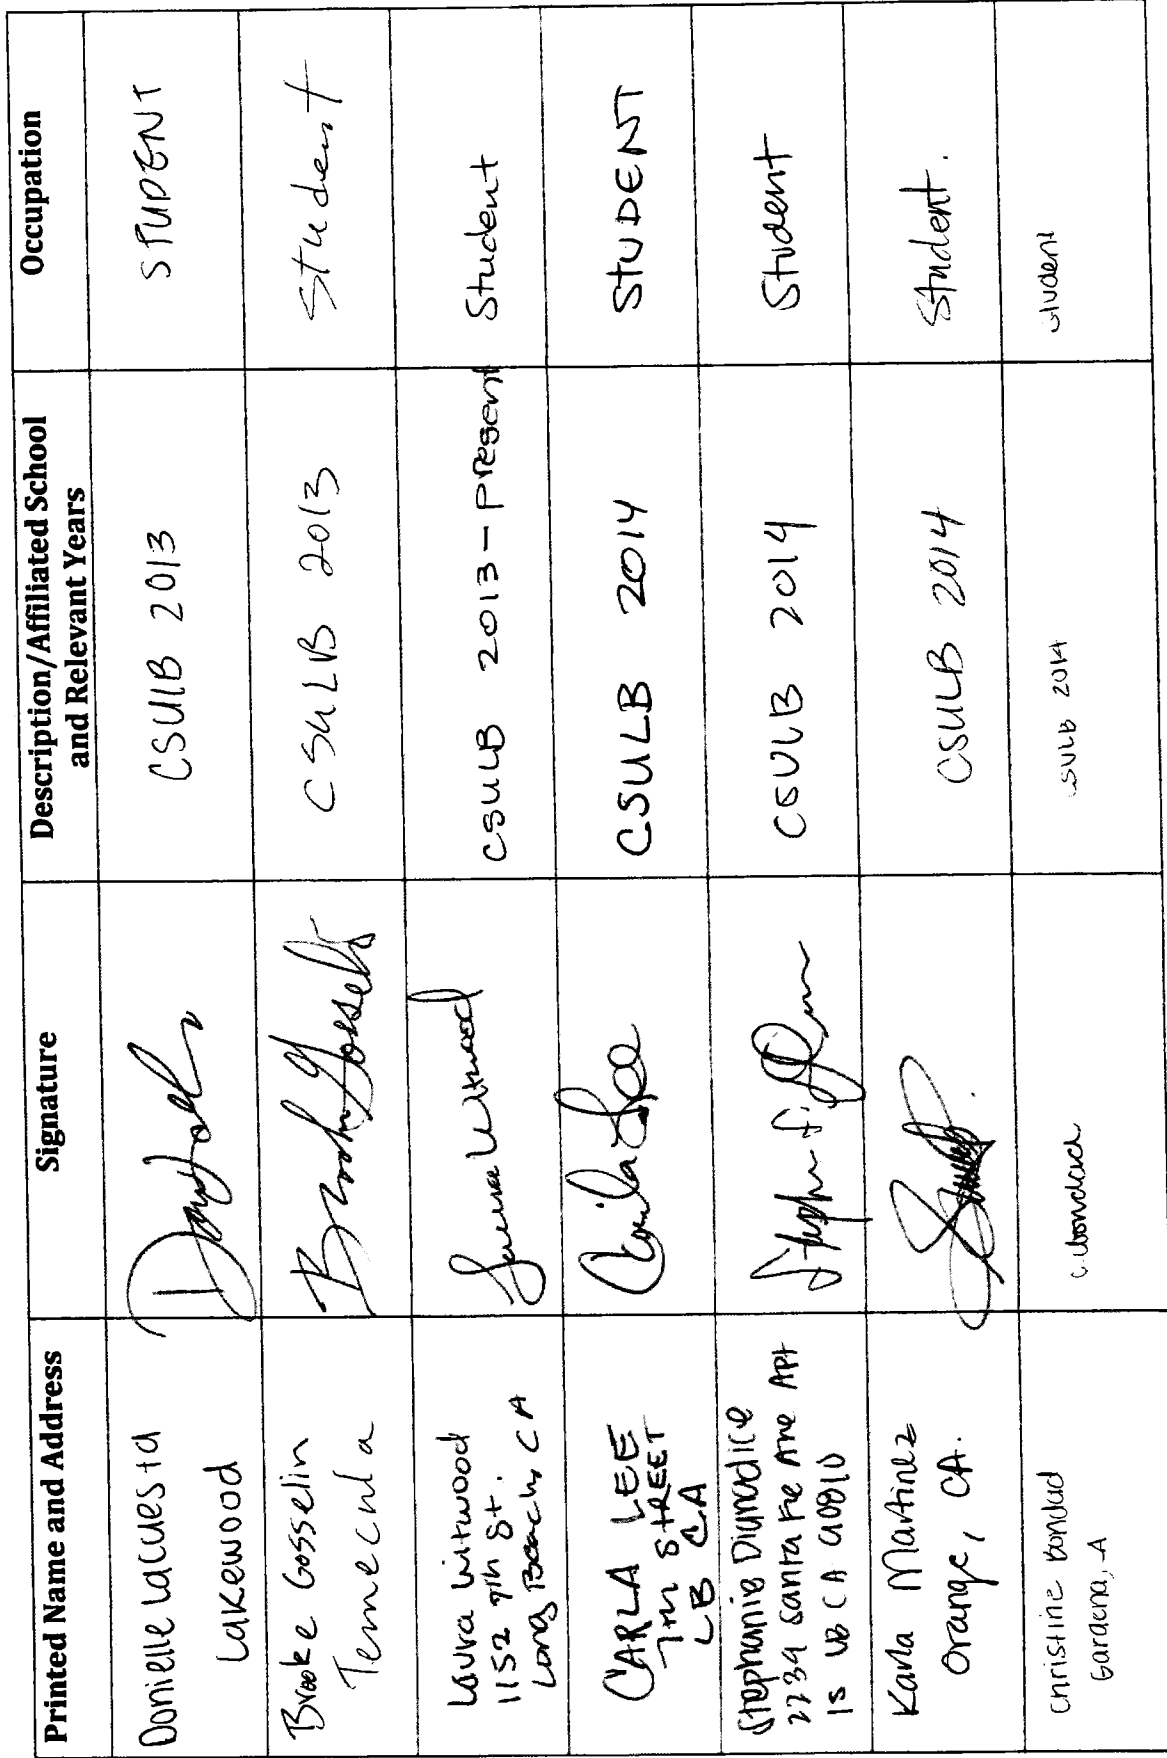 Printed Name and Address
Signature
Description/Affiliated School
and Relevant Years
Occupation
Danielle Lacuesta
Lakewood
CSULB 2013
STUDENT
Brooke Gosselin
Temecula
CSULB 2013
Student
Laura Witwood
1152 7th St.
Long Beach, CA
CSULB 2013 - Present
Student
CARLA LEE
7th STREET
LB CA
Carla Lee
CSULB 2014
STUDENT
Stephanie
2234 Santa Fe Ave Apt
15 LB CA 90810
CSULB 2014
Student
Karla Martinez
Orange, CA.
CSULB 2014
Student.
Christine Bondad
Gardena, A
C. Bondad
CSULB 2014
student